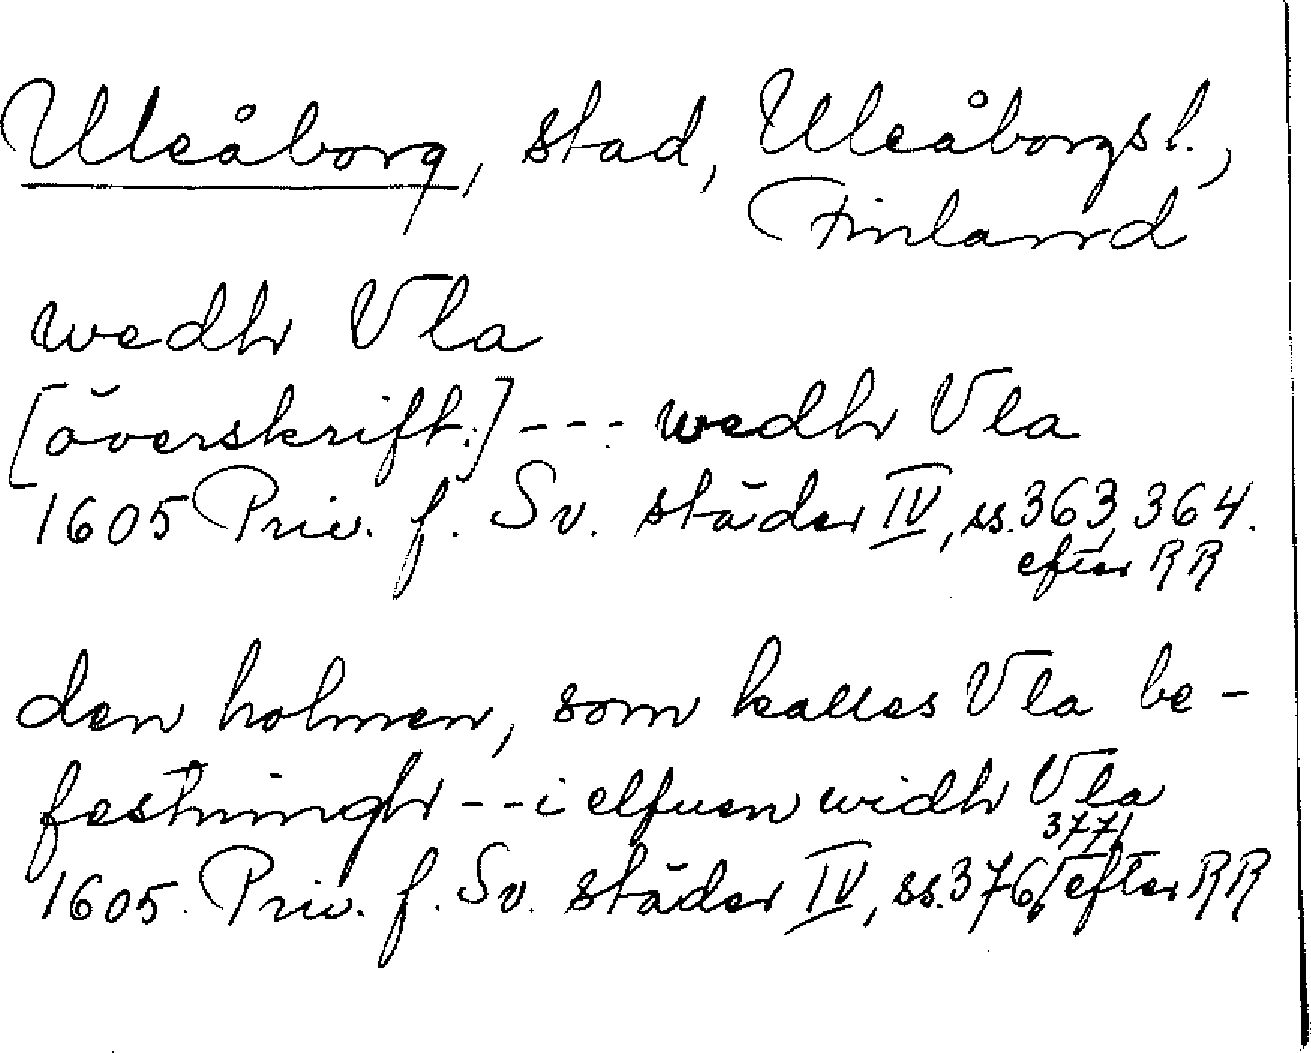 Uleåborg, stad, Uleåborgsl.,
Finland
wedh Vla
[överskrift.] --- wedh Vla
1605 Priv. f. Sv. städer IV, ss. 363, 364.
efter RR
den holmen, som kalles Vla be-
festningh -- i elfuen widh Vla
1605. Priv. f. Sv. städer IV, ss. 376, 377, efter RR